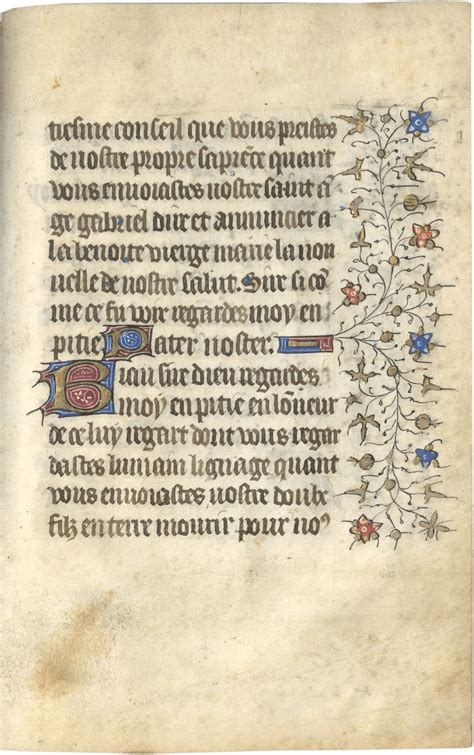 tiesme conseil que vous preistes
de nostre propre sapiẽce quant
vous envoiastes nostre saint ã
ge gabriel dire et annuncier a
la benoite vierge marie la nou
uelle de nostre salut. Sire si cõ
me ce fu voir regardes moy en
pitie Pater noster.
Biau sire dieu regardes
moy en pitie en lõneur
de celuy regart dont vous regar
dastes lumain lignage quant
vous envoiastes nostre doube
filz en terre mourir pour noꝰ